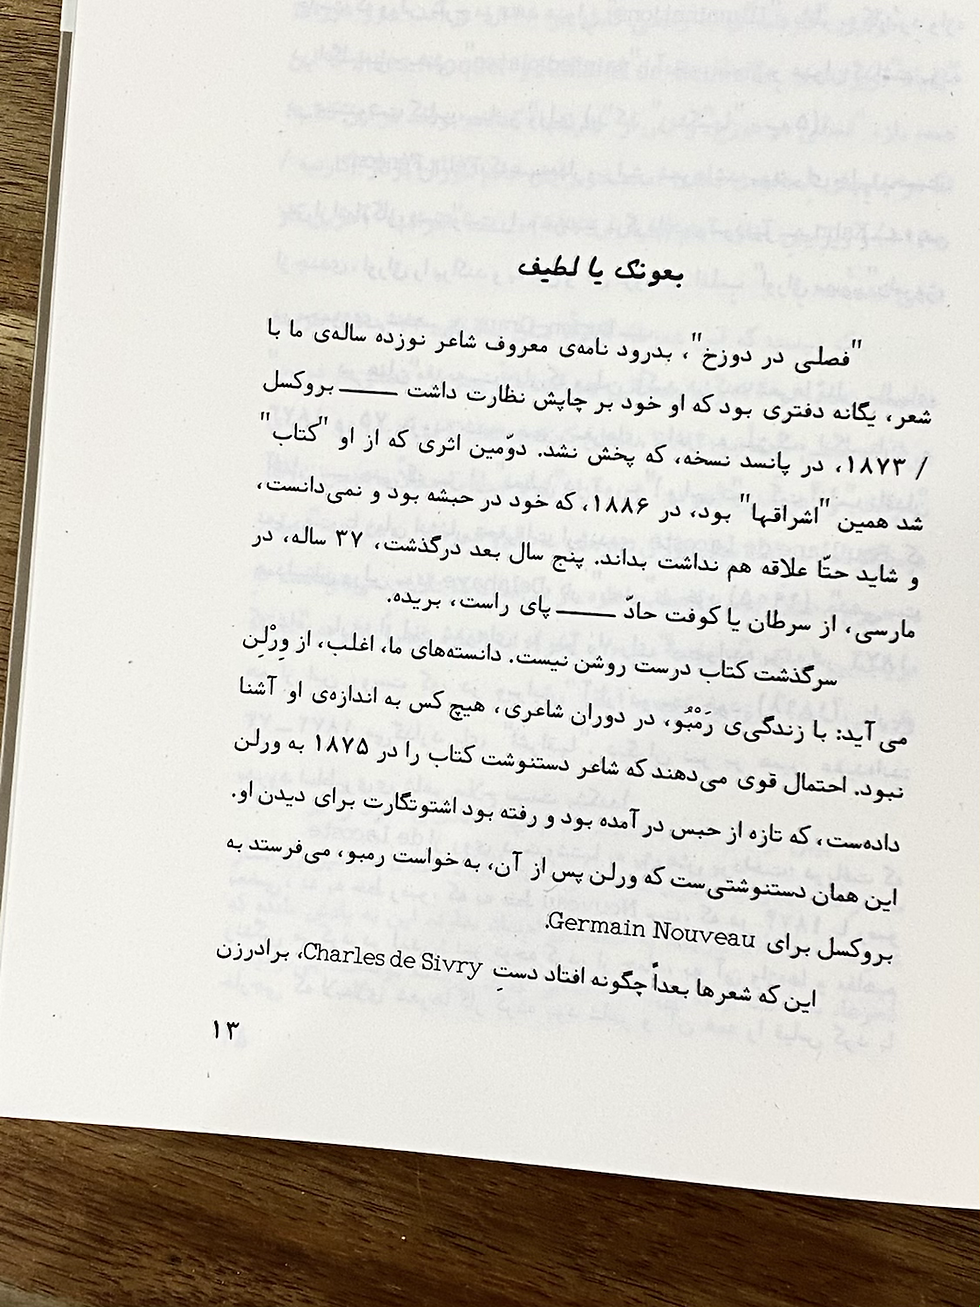 بعونک یا لطیف
"فصلی در دوزخ"، بدرود نامه‌ی معروف شاعر نوزده ساله‌ی ما با
شعر، یگانه دفتری بود که او خود بر چاپش نظارت داشت ـــــــ بروکسل
/ ۱۸۷۳، در پانسد نسخه، که پخش نشد. دوّمین اثری که از او "کتاب"
شد همین "اشراقها" بود، در ۱۸۸۶، که خود در حبشه بود و نمی‌دانست،
و شاید حتّا علاقه هم نداشت بداند. پنج سال بعد درگذشت، ۳۷ ساله، در
مارسی، از سرطان یا کوفت حادّ ـــــــ پای راست، بریده.
سرگذشت کتاب درست روشن نیست. دانسته‌های ما، اغلب، از وِرْلن
می آید: با زندگی‌ی رَمْبْو، در دوران شاعری، هیچ کس به اندازه‌ی او آشنا
نبود. احتمال قوی می‌دهند که شاعر دستنوشت کتاب را در ۱۸۷۵ به ورلن
داده‌ست، که تازه از حبس در آمده بود و رفته بود اشتوتگارت برای دیدن او.
این همان دستنوشتی‌ست که ورلن پس از آن، به خواست رمبو، می‌فرستد به
بروکسل برای Germain Nouveau.
این که شعرها بعداً چگونه افتاد دستِ Charles de Sivry، برادرزن
۱۳